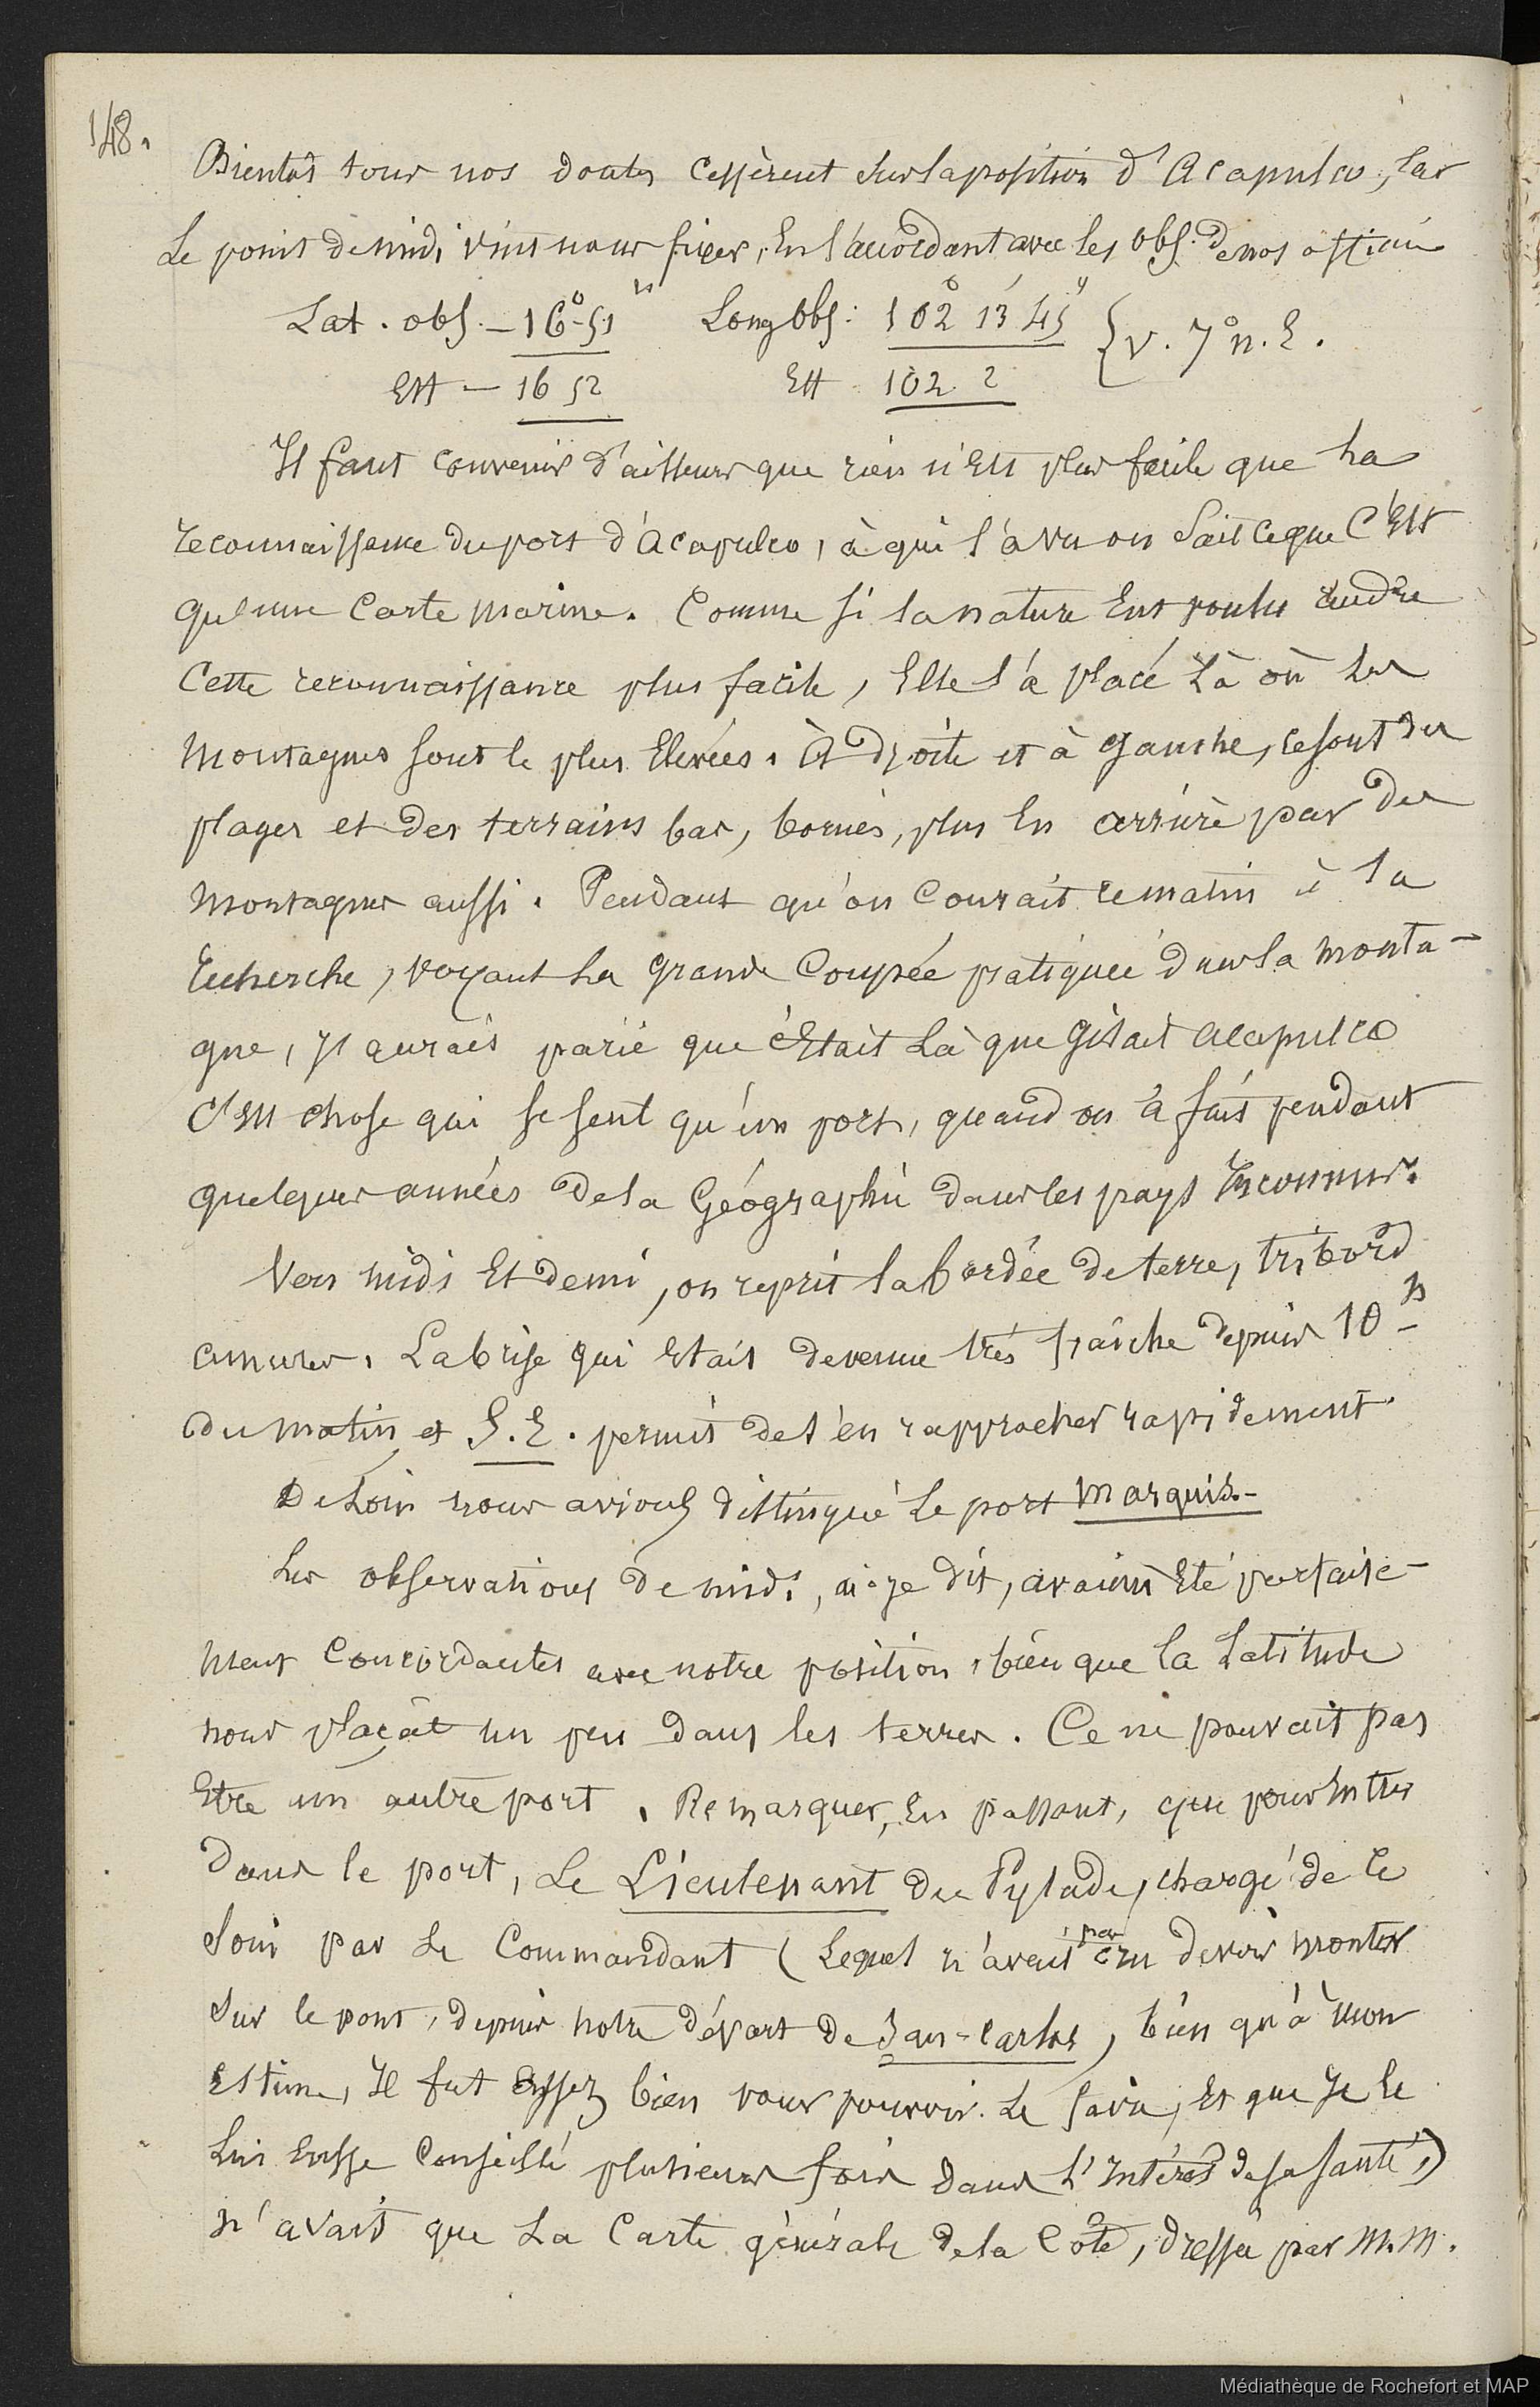 148.
Bientôt tous nos doutes cessèrent sur la position d'Acapulco, car
Le point de midi vint nous fixer, En s'accordant avec les obs. de nos officiers
Lat. obs. — 16° 51' N Long obs: 102° 13' 45" { V. 7° n. E.
Est — 16 52 Est 102 2
Il faut convenir d'ailleurs que rien n'Est plus facile que La
reconnaissance du port d'Acapulco, à qui l'a vu ou sait ce que C'Est
qu'une Carte marine. Comme si la nature Eut voulu rendre
Cette reconnaissance plus facile, Elle l'a placé Là où les
Montagnes sont le plus Elevées. À droite et à gauche, ce sont des
plages et des terrains bas, bornés, plus En arrière par des
Montagnes aussi. Pendant qu'on Courait ce matin à sa
recherche, voyant La grande Coupée pratiquée dans la monta-
gne, J'aurais parié que c'Etait Là que Gisait Acapulco
C'Est chose qui se sent qu'un port, quand on a fait pendant
quelques années De la Géographie dans les pays Inconnus.
Vers midi Et demi, on reprit la bordée de terre, tribord
amures. La brise qui Etait devenue très fraîche depuis 10 h
du matin et S.E. permit de s'en rapprocher rapidement
De Loin nous avions distingué Le port Marquis.-
Les observations de midi, ai-je dit, avaient Eté parfaite-
ment Concordantes avec notre position, bien que la Latitude
nous plaçât un peu dans les terres. Ce ne pouvait pas
Etre un autre port. Remarquez, En passant, que pour Entrer
dans le port, Le Lieutenant du Pylade, chargé de ce
Soin par Le Commandant (Lequel n'avait pas cru devoir monter
sur le pont, depuis notre départ de San-Carlos, bien qu'à mon
Estime, Il fut assez bien pour pouvoir Le faire, Et que Je le
Lui Eusse Conseillé plusieurs fois dans L'Intérêt de sa santé,)
n'avait que La Carte générale de la Côte, dressée par M.M.
Médiathèque de Rochefort et MAP